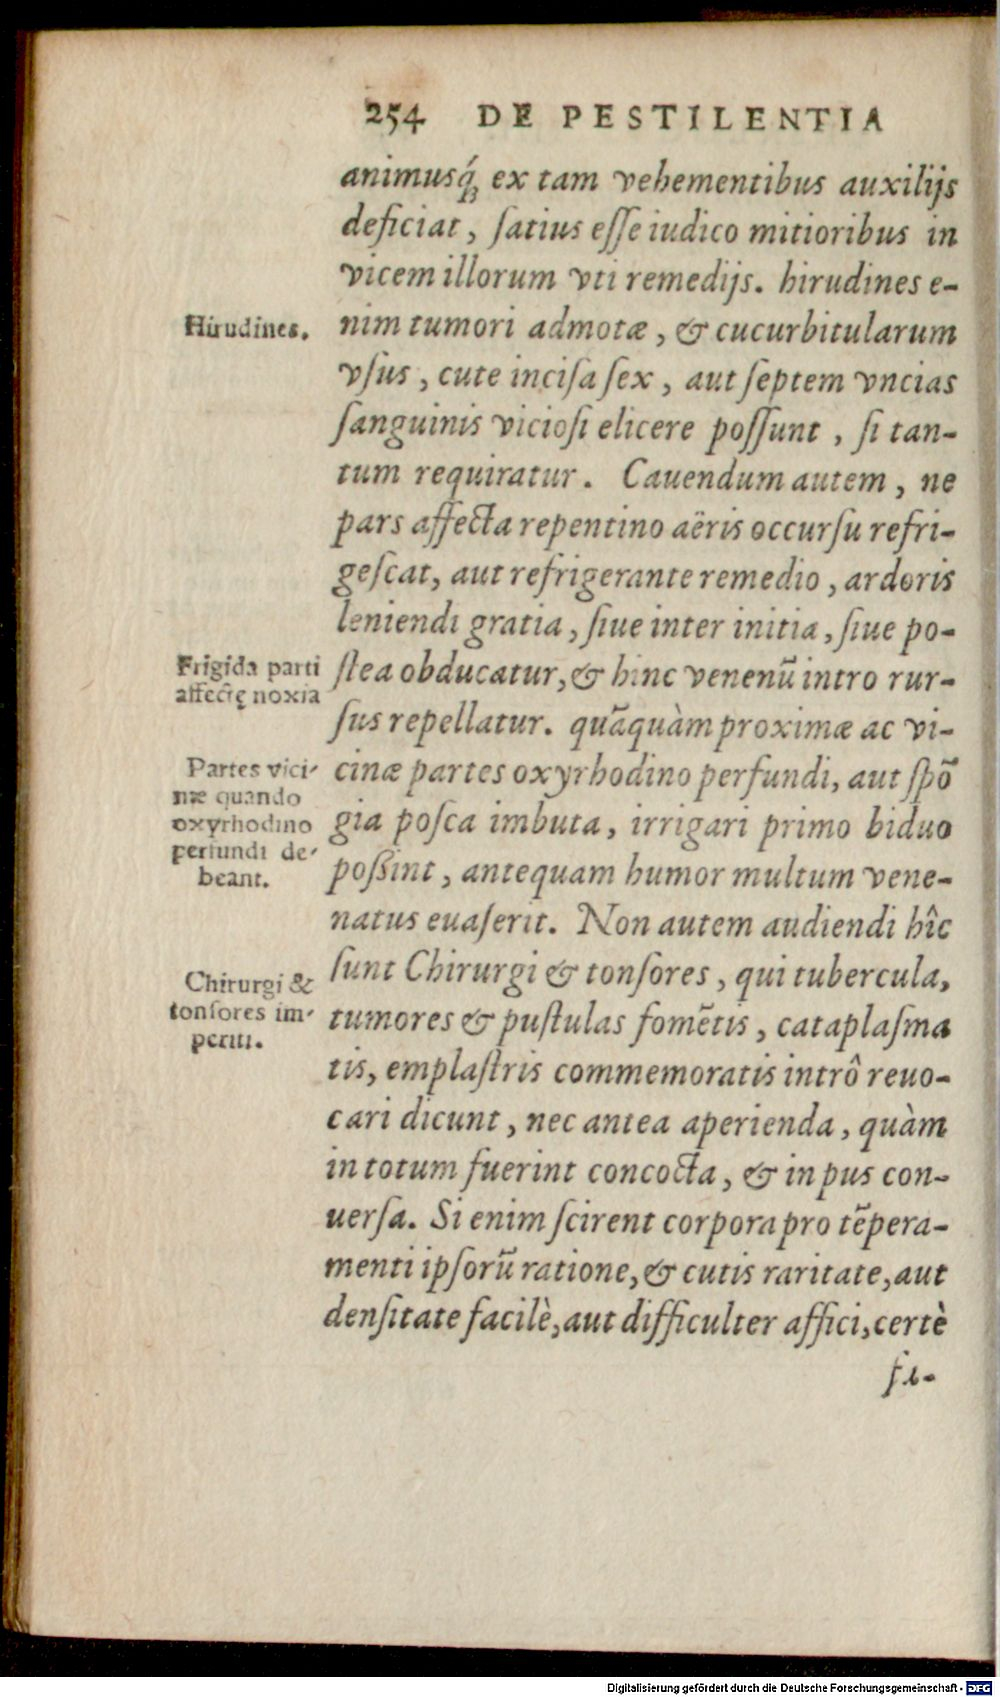 254 DE PESTILENTIA
animusq́; ex tam vehementibus auxilijs
deficiat, ſatius eſſe iudico mitioribus in
vicem illorum vti remedijs. hirudines e-
Hirudines.
nim tumori admotæ, & cucurbitularum
vſus, cute inciſa ſex, aut ſeptem vncias
ſanguinis vicioſi elicere poſſunt, ſi tan-
tum requiratur. Cauendum autem, ne
pars affecta repentino aëris occurſu refri-
geſcat, aut refrigerante remedio, ardoris
leniendi gratia, ſiue inter initia, ſiue po-
Frigida parti
affectę noxia
ſtea obducatur, & hinc venenũ intro rur-
ſus repellatur. quãquàm proximæ ac vi-
Partes vici-
næ quando
oxyrhodino
perfundi de-
beant.
cinæ partes oxyrhodino perfundi, aut ſpõ
gia poſca imbuta, irrigari primo biduo
poßint, antequam humor multum vene-
natus euaſerit. Non autem audiendi hîc
Chirurgi &
tonſores im-
periti.
ſunt Chirurgi & tonſores, qui tubercula,
tumores & puſtulas fomẽtis, cataplaſma
tis, emplaſtris commemoratis intrô reuo-
cari dicunt, nec antea aperienda, quàm
in totum fuerint concocta, & in pus con-
uerſa. Si enim ſcirent corpora pro tẽpera-
menti ipſorũ ratione, & cutis raritate, aut
denſitate facilè, aut difficulter affici, certè
ſi-
Digitalisierung gefördert durch die Deutsche Forschungsgemeinschaft - DFG